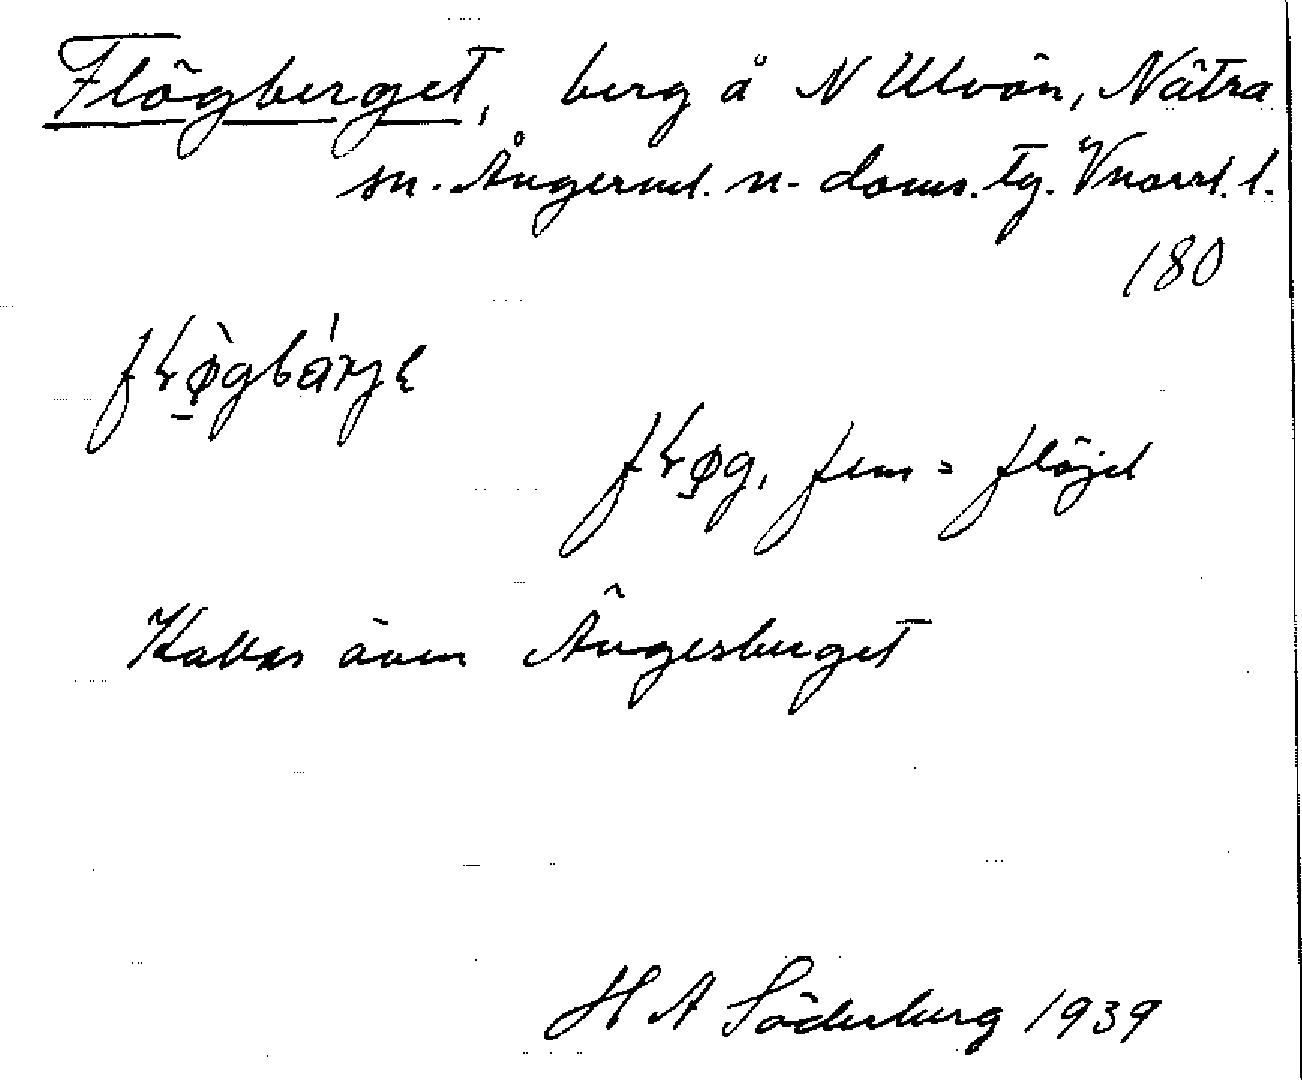 Flögberget, berg å N Ulvön, Nätra
sn. Ångerml. n. doms. tg. Vnorrl. l.
180
fɽø̀gbárjɛ
fɽøg, fem = flöjel
Kallas även Ängesberget
H A Söderberg 1939